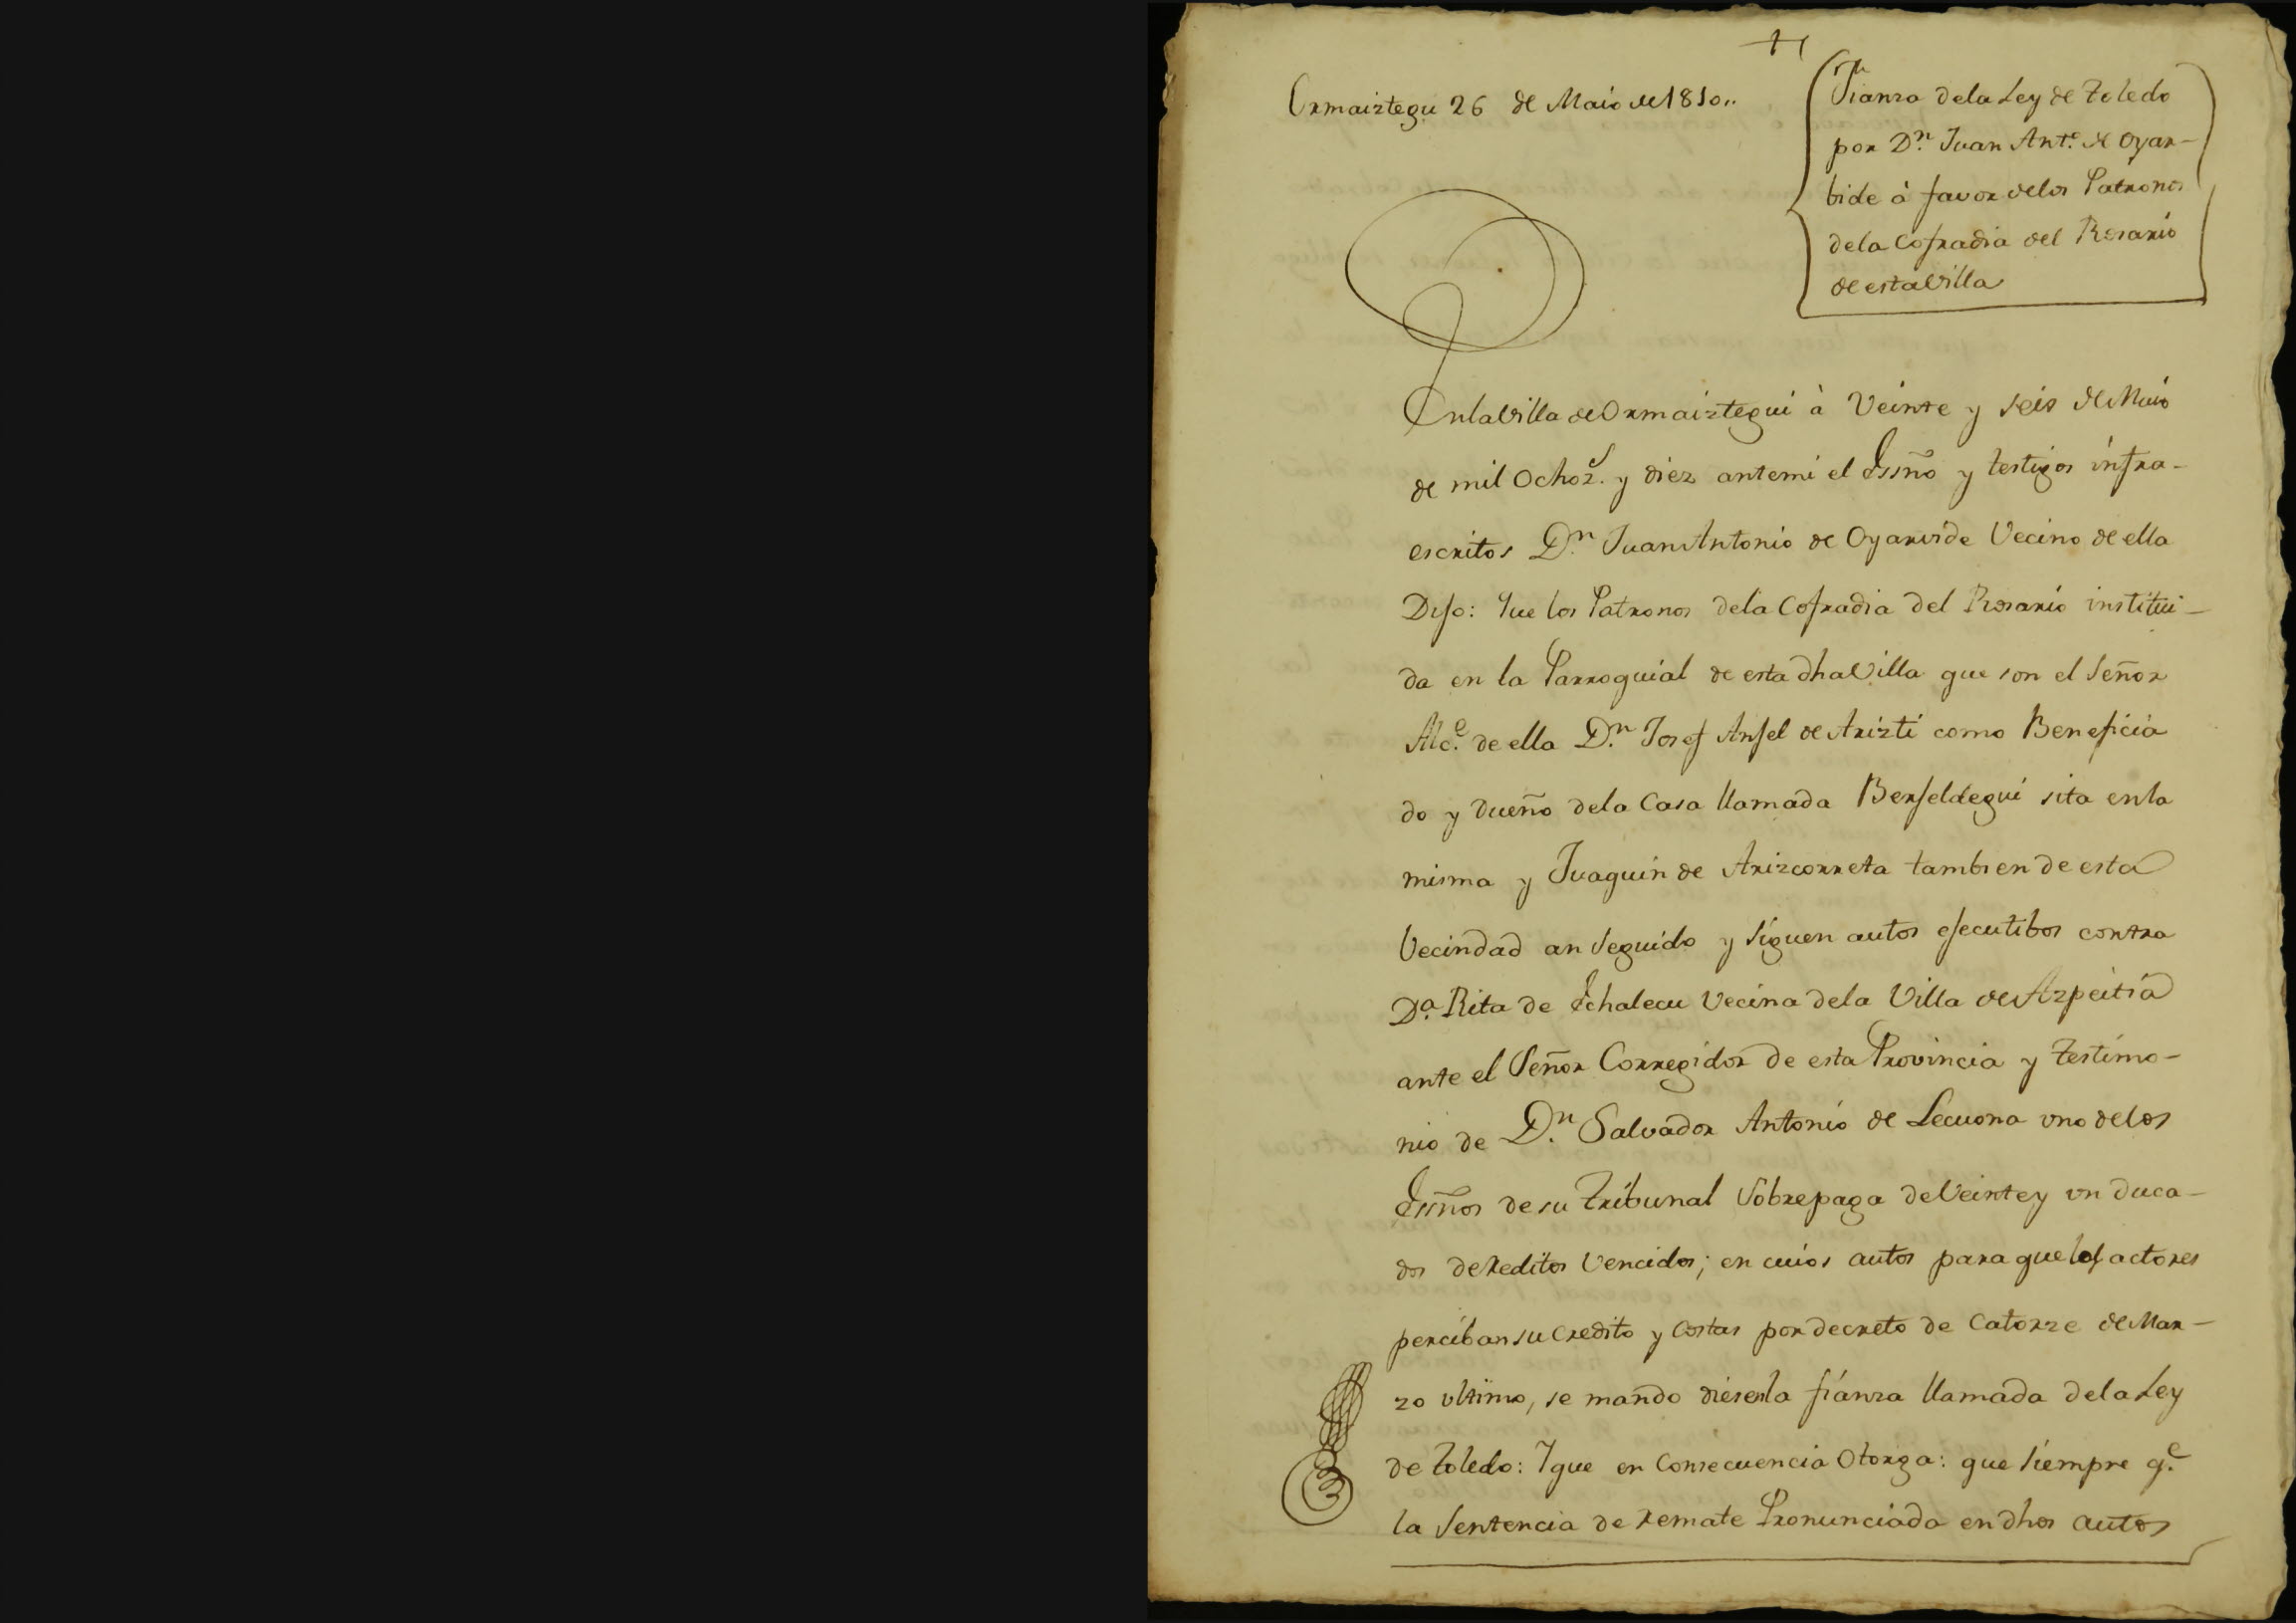 Ormaiztegu 26 de Maio de 1810..
Fianza dela Ley de Toledo
por Dn. Juan Ant.º de Oyar-
bide à favor delos Patronos
dela Cofradia del Rosario
de esta Villa
En la Villa de Ormaiztegui à Veinte y seis de Maio
de mil Ochoz.s y diez antemi el Essño y testigos infra-
escritos Dn. Juan Antonio de Oyarvide Vecino de ella
Dijo: que los Patronos dela Cofradia del Rosario institui-
da en la Parroquial de esta dha Villa que son el Señor
Alc.e de ella Dn. Josef Anjel de Arizti como Beneficia
do y dueño dela Casa llamada Berjeldegui sita enla
misma y Juaquin de Arizcorreta tambien de esta
Vecindad an seguido y siguen autos ejecutibos contra
Da. Rita de Echalecu Vecina dela Villa de Azpeitia
ante el Señor Corregidor de esta Provincia y testimo-
nio de Dn. Salvador Antonio de Lecuona uno delos
Essños de su Tribunal sobrepaga de Veinte y un duca-
dos de Reditos Vencidos; en cuios autos para que los actores
perciban su credito y costas por decreto de Catorze de Mar-
zo ultimo, se mando diesenla fianza llamada dela Ley
de Toledo: Y que en Consecuencia Otorga: que siempre q.e
la Sentencia de remate Pronunciada en dhos autos